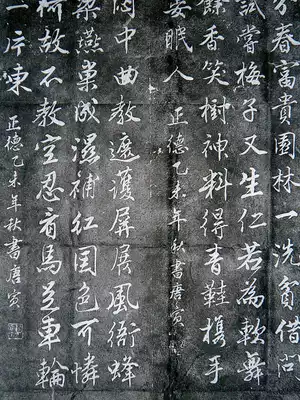 春富貴園林一洗貧借問
試嘗梅子又生仁若為軟舞
餘香笑樹神料得青鞋携手
晏眠人 正德乙未年秋書唐寅
悶中曲教遮護屏展風衙蜂
梁燕巢成濕補紅国色可憐
何故不教空忍看馬足車輪
一片東 正德乙未年秋書唐寅